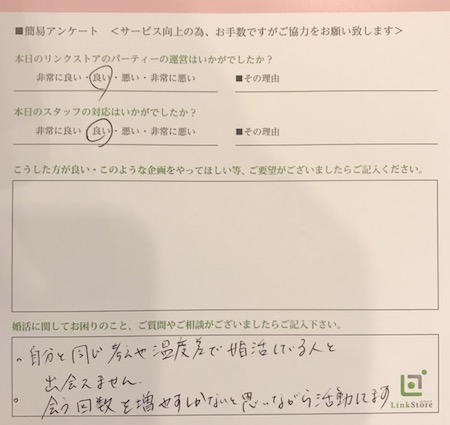 ■簡易アンケート ＜サービス向上の為、お手数ですがご協力をお願い致します＞
本日のリンクストアのパーティーの運営はいかがでしたか？
非常に良い・良い・悪い・非常に悪い ■その理由
本日のスタッフの対応はいかがでしたか？
非常に良い・良い・悪い・非常に悪い ■その理由
こうした方が良い・このような企画をやってほしい等、ご要望がございましたらご記入ください。
婚活に関してお困りのこと、ご質問やご相談がございましたらご記入下さい。
。自分と同じ考えや温度差で婚活している人と
出会えません.
。会う回数を増やすしかないと思いながら活動してます
LinkStore